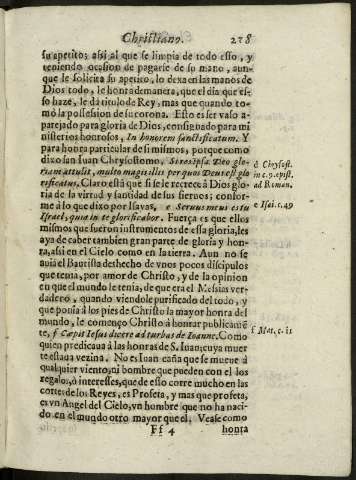 Christiano. 228
su apetito; assi al que se limpia de todo esso, y
teniendo ocasion de pagarse de su mano, aun-
que le solicita su apetito, lo dexa en las manos de
Dios todo, le honra demanera, que el dia que es-
so haze, le da titulo de Rey, mas que quando to-
mò la possession de su corona. Esto es ser vaso a-
parejado para gloria de Dios, consignado para mi
nisterios honrosos, In honorem sanctificatum. Y
para honra particular de si mismos, porque como
dixo san Iuan Chrysostomo, Si res ipsa Deo glo-
riam attulit, multo magis illis per quos Deus est glo
rificatus. Claro està que si se le recrece à Dios glo-
ria de la virtud y santidad de sus sieruos; confor-
me à lo que dixo por Isayas, e Seruus meus es tu
Israel, quia in te glorificabor. Fuerça es que ellos
mismos que fueron instrumentos de essa gloria, les
aya de caber tambien gran parte de gloria y hon-
ra, assi en el Cielo como en la tierra. Aun no se
auia el Bautista deshecho de vnos pocos discipulos
que tenia, por amor de Christo, y de la opinion
en que el mundo le tenia, de que era el Messias ver-
dadero, quando viendole purificado del todo, y
que ponia à los pies de Christo la mayor honra del
mundo, le començo Christo à honrar publicamẽ
te, f Cœpit Iesus dicere ad turbas de Ioanne. Como
quien predicaua à las honras de S. Iuan, cuya muer
te estaua vezina. No es Iuan caña que se mueue à
qualquier viento, ni hombre que pueden con el los
regalos, ò interesses, que de esso corre mucho en las
cortes de los Reyes, es Profeta, y mas que profeta,
es vn Angel del Cielo, vn hombre que no ha naci-
do en el mundo otro mayor que el. Vease como
Ff 4 honra
d Chysost.
in c. 9. epist.
ad Roman.
e Isai. c. 49
f Mat. c. 11